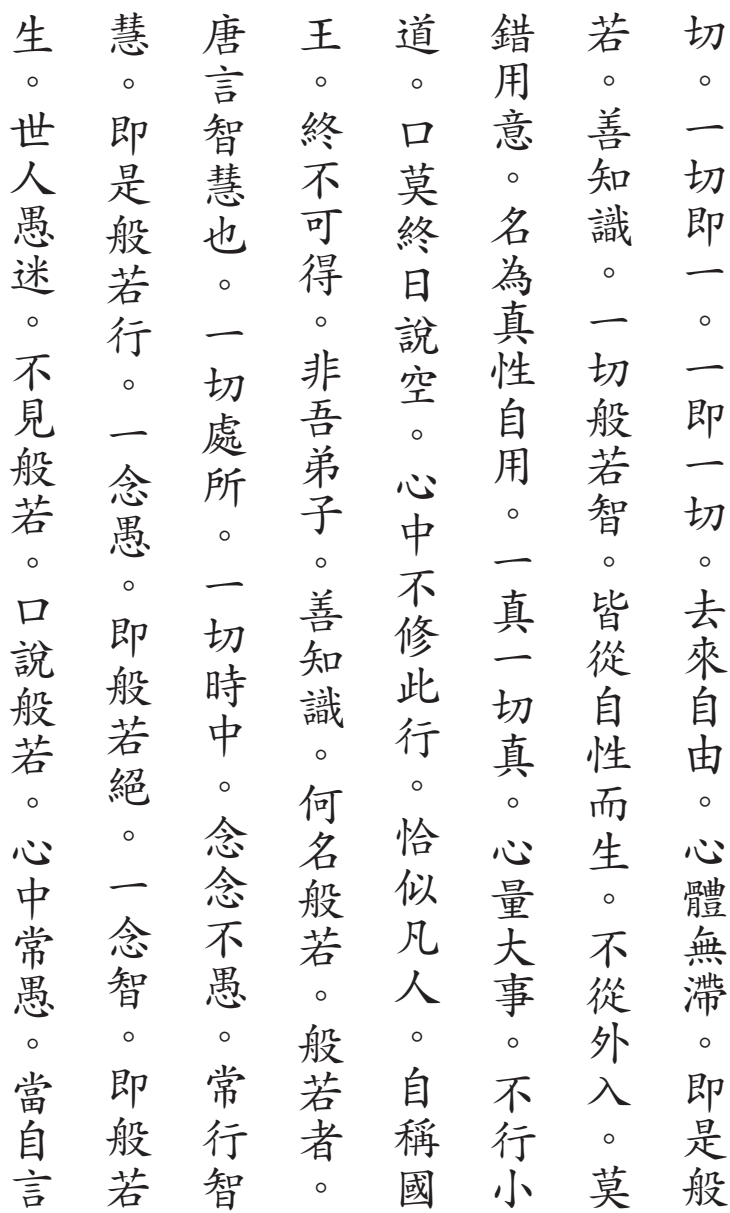 切。一切即一。一即一切。去來自由。心體無滯。即是般
若。善知識。一切般若智。皆從自性而生。不從外入。莫
錯用意。名為真性自用。一真一切真。心量大事。不行小
道。口莫終日說空。心中不修此行。恰似凡人。自稱國
王。終不可得。非吾弟子。善知識。何名般若。般若者。
唐言智慧也。一切處所。一切時中。念念不愚。常行智
慧。即是般若行。一念愚。即般若絕。一念智。即般若
生。世人愚迷。不見般若。口說般若。心中常愚。當自言